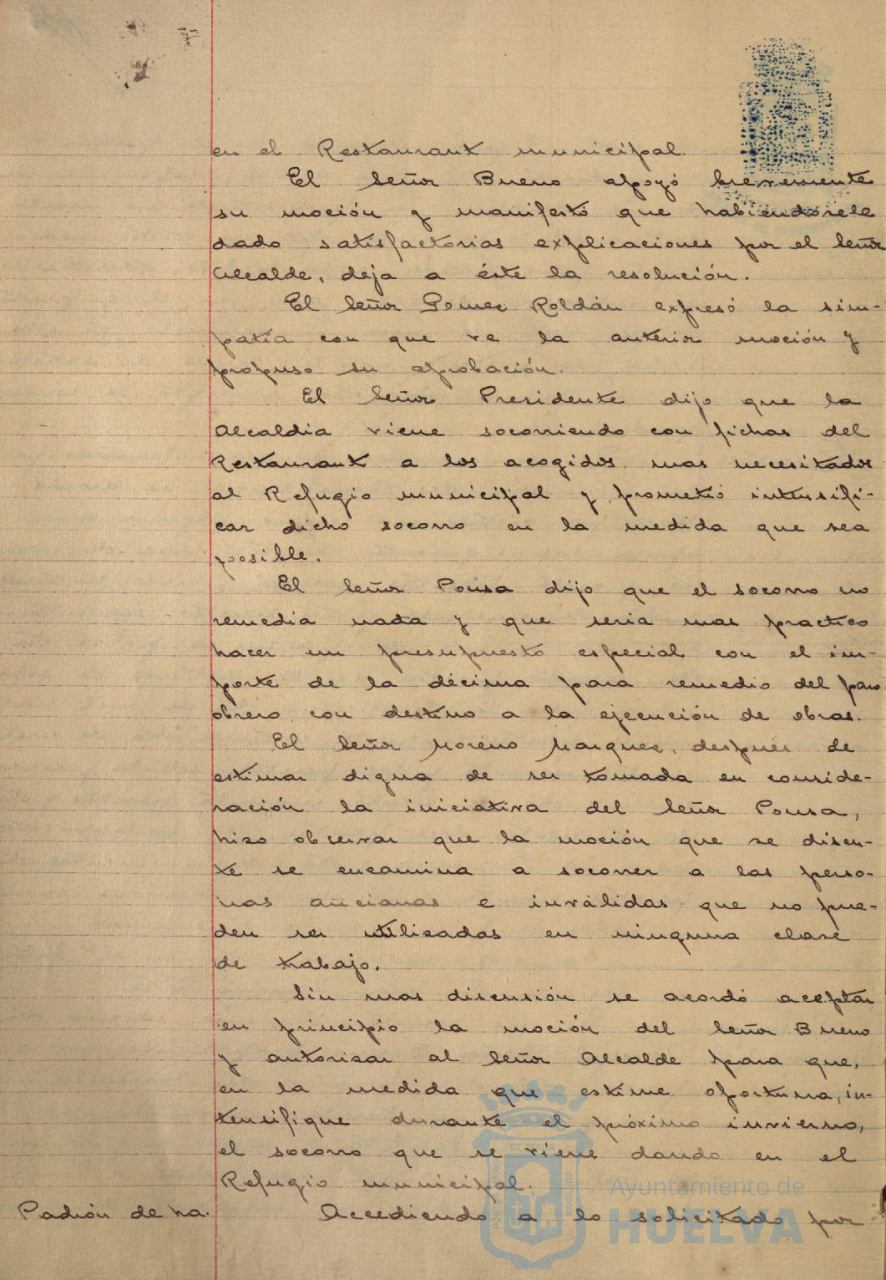 en el Restaurant municipal.
El Señor Bueno apoyó brevemente
su moción y manifestó que habiéndosele
dado satisfactorias explicaciones por el Señor
Alcalde, deja a éste la resolución.
El Señor Gomez Roldán expresó la sim-
patía con que ve la anterior moción y
propuso su aprobación.
El Señor Presidente dijo que la
Alcaldia viene socorriendo con fichas del
Restaurant a los acogidos mas necesitados
al Refugio municipal y prometió intensifi-
car dicho socorro en la medida que sea
posible.
El Señor Ponsa dijo que el socorro no
remedia nada y que seria mas practico
hacer un presupuesto especial con el im-
porte de la décima para remedio del paro
obrero con destino a la ejecución de obras.
El Señor Moreno Marquez, despues de
estimar digna de ser tomada en conside-
ración la iniciativa del Señor Ponsa,
hizo observar que la moción que se discu-
te se encamina a socorrer a las perso-
nas ancianas e inválidas que no pue-
den ser utilizadas en ninguna clase
de trabajo.
Sin mas discusión se acordó aceptar
en principio la moción del Señor Bueno
y autorizar al Señor Alcalde para que,
en la medida que estime oportuna, in-
tensifique durante el próximo invierno,
el socorro que se viene dando en el
Refugio municipal.
Padrón de ha- Accediendo a lo solicitado por
Ayuntamiento de
HUELVA